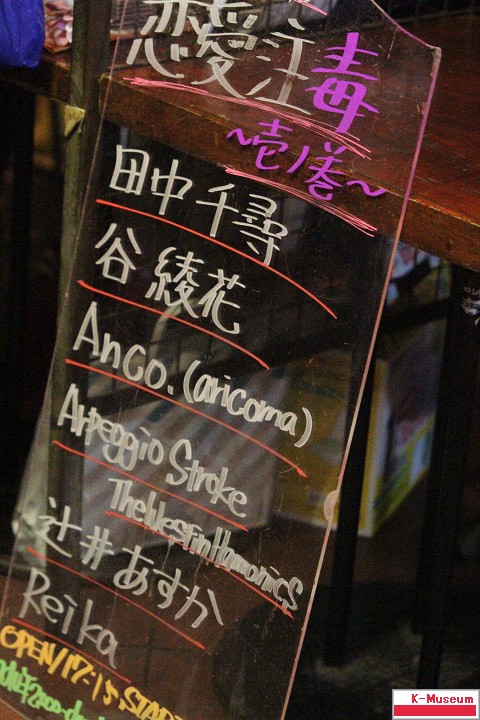 恋愛注毒
～壱ノ巻～
田中千尋
谷綾花
AnCo.(aricoma)
Arpeggio Stroke
The West in Harmonics
辻井あすか
Reika
OPEN/17:15,START
K-Museum